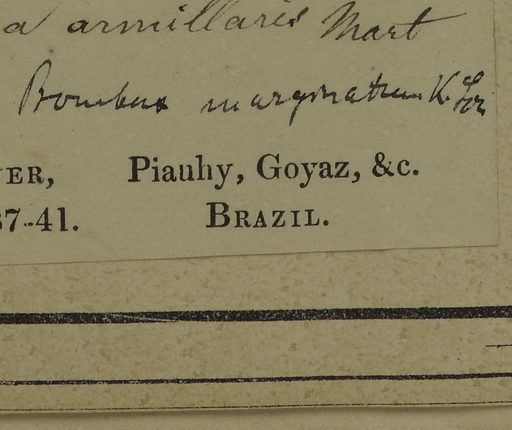 a armillaris Mart
Bombax marginatum K. Sch
ER, Piauhy, Goyaz, &c.
37-41. BRAZIL.